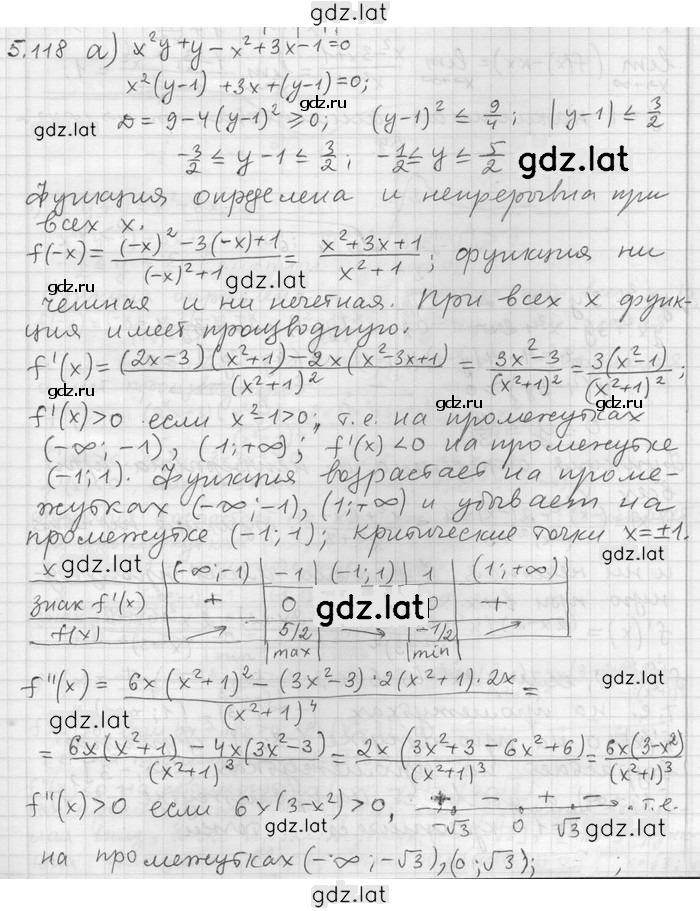 gdz.lat
5.118 а) x²y+y-x²+3x-1=0
x²(y-1)+3x+(y-1)=0;
gdz.lat
D=9-4(y-1)²⩾0; (y-1)² ≤ 9/4; |y-1| ≤ 3/2
gdz.lat
-3/2 ≤ y-1 ≤ 3/2; -1/2 ≤ y ≤ 5/2
gdz.lat
Функция определена и непрерывна при
всех x.
f(-x)= ((-x)²-3(-x)+1)/((-x)²+1) = (x²+3x+1)/(x²+1); функция ни
gdz.lat gdz.lat
четная и ни нечетная. При всех x функ-
ция имеет производную.
f'(x)= ((2x-3)(x²+1)-2x(x²-3x+1))/(x²+1)² = (3x²-3)/(x²+1)² = 3(x²-1)/(x²+1)²;
gdz.lat gdz.lat
f'(x)>0 если x²-1>0, т.е. на промежутках
(-∞;-1), (1;+∞); f'(x)<0 на промежутке
(-1;1). Функция возрастает на проме-
жутках (-∞;-1), (1;+∞) и убывает на
промежутке (-1;1); критические точки x=±1.
gdz.lat gdz.lat
x (-∞;-1) -1 (-1;1) 1 (1;+∞)
знак f'(x) + 0 - 0 +
gdz.lat
f(x) → 5/2 → -1/2 →
max min
f''(x)= (6x(x²+1)²-(3x²-3)·2(x²+1)·2x)/(x²+1)⁴ =
gdz.lat gdz.lat
= (6x(x²+1)-4x(3x²-3))/(x²+1)³ = 2x(3x²+3-6x²+6)/(x²+1)³ = 6x(3-x²)/(x²+1)³
f''(x)>0 если 6x(3-x²)>0, + - + - т.е.
√3 0 √3
gdz.lat gdz.lat
на промежутках (-∞;-√3), (0;√3); ;
gdz.lat